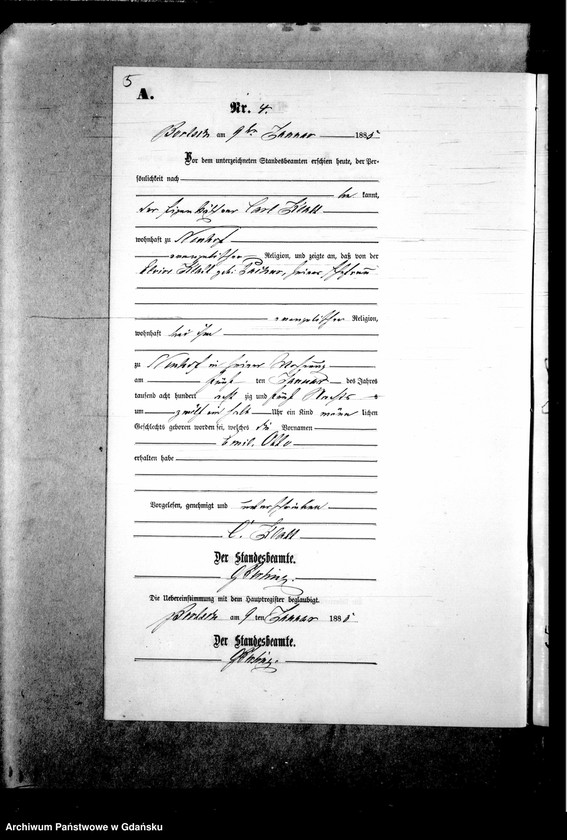 5
A.
Nr. 4.
am 9ten Januar 1885
Vor dem unterzeichneten Standesbeamten erschien heute, der Per-
sönlichkeit nach
be kannt,
der Eigenkäthner Carl Klatt
wohnhaft zu Neuhof
evangelischer Religion, und zeigte an, daß von der
Klatt geb. seiner Ehefrau
evangelischer Religion,
wohnhaft bei ihm
zu Neuhof in seiner Wohnung
am fünf ten Januar des Jahres
tausend acht hundert acht zig und fünf Nachts
um zwölf ein halb Uhr ein Kind männ lichen
Geschlechts geboren worden sei, welches die Vornamen
Emil Otto
erhalten habe
Vorgelesen, genehmigt und unterschrieben
C. Klatt
Der Standesbeamte.
Die Uebereinstimmung mit dem Hauptregister beglaubigt.
am 9 ten Januar 1885
Der Standesbeamte.
Archiwum Państwowe w Gdańsku